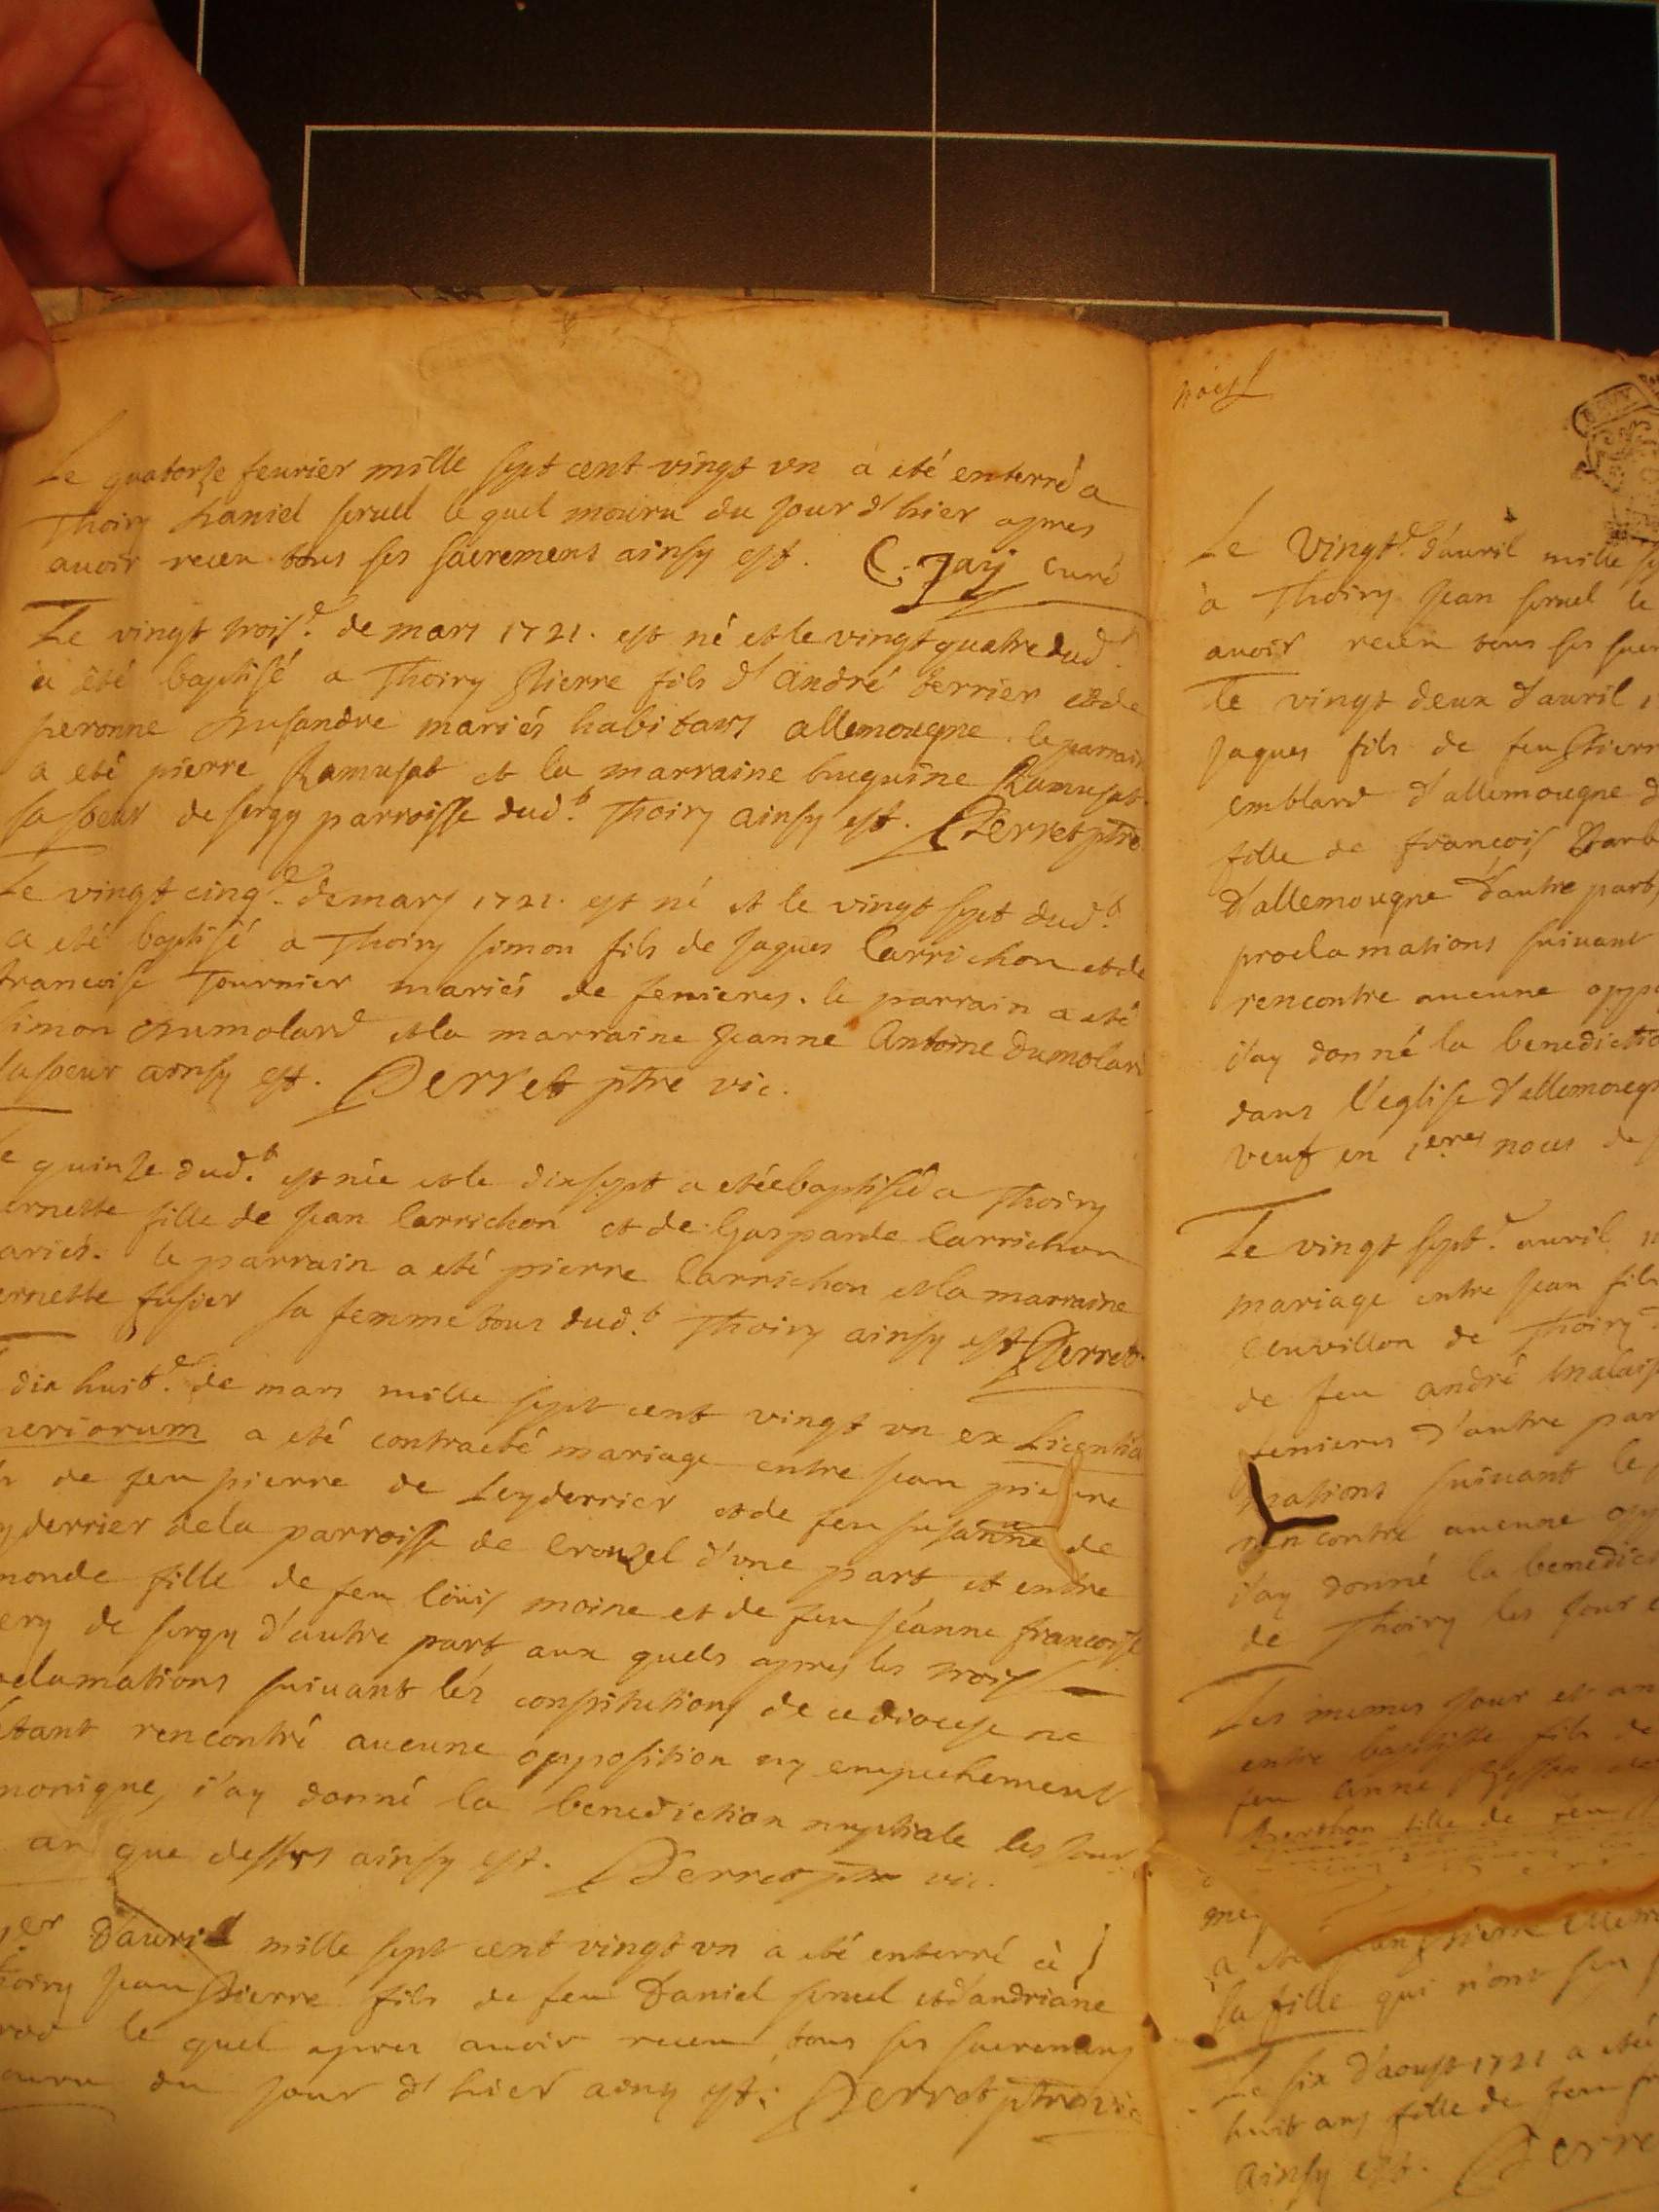 Le quatorze feurier mille sept cent vingt vn a été enterré a
Thoiry Daniel seruel le quel mouru du jour d'hier apres
auoir receu tous ses sacremens ainsy est. C. Jaÿ curé
Le vingt trois.e de mars 1721. est né et le vingt quatre dud.t
a été baptisé a Thoiry Pierre fils d'andré terrier et de
peronne mariés habitans allemougne. le parrain
a eté pierre Ramusat et la marraine huguine Ramusat
sa soeur de sergy parroisse dud.t Thoiry ainsy est. Perret ptre
Le vingt cinq.e de mars 1721. est né et le vingt sept dud.t
a eté baptisé a Thoiry simon fils de jaques Carrichon et de
francoise Tournier mariés de fenieres. le parrain a eté
simon Dumolard et la marraine jeanne Antoine Dumolard
sa soeur ainsy est. Perret ptre vic.
quinze dud.t est née et le dix sept a eté baptisée a Thoiry
ernette fille de jean Carrichon et de Gasparde Carrichon
ariés. le parrain a eté pierre Carrichon et la marraine
ernette fusier sa femme tous dud.t Thoiry ainsy est Perret
dix huit.e de mars mille sept cent vingt vn ex Licentia
periorum a eté contracté mariage entre jean pierre
de feu pierre de Leyderrier et de feu susanne de
yderrier de la parroisse de Crouzel d'vne part et entre
monde fille de feu loüis moine et de feu jéanne francoise
ery de sergy d'autre part aux quels apres les trois
oclamations suiuant lés constitutions de ce diocese ne
étant rencontré aucune opposition ny empechement
nonique, i'ay donné la benediction nuptiale les jour
an que dessus ainsy est. Perret ptre vic.
1er d'auril mille sept cent vingt vn a eté enterré à
Thoiry jean Pierre fils de feu Daniel seruel et d'andriane
le quel apres auoir receu tous ses sacremens
ouru du jour d'hier ainsy est. Perret ptre vic
trois
Le Vingt.e d'auril mille se
à Thoiry jean seruel le
auoir receu tous ses sacr
Le vingt deux d'auril 1
jaques fils de feu Pierr
emblard d'allemougne d
fille de francois Barb
d'allemougne d'autre part
proclamations suiuant
rencontre aucune oppo
i'ay donné la benedictio
dans l'eglise d'allemougn
veuf en 1eres noces de
Le vingt sept.e auril m
mariage entre jean fils
de Thoiry d
de feu andré malais
fenieres d'autre par
mations suiuant le
rencontre aucune opp
i'ay donné la benedict
de Thoiry les jour e
Les memes jour et an
entre baptiste fils de
feu anne
fille de feu
sa fille qui n'ont sçu
Le six d'aoust 1721 a eté
huit ans fille de feu
ainsy est. Perre